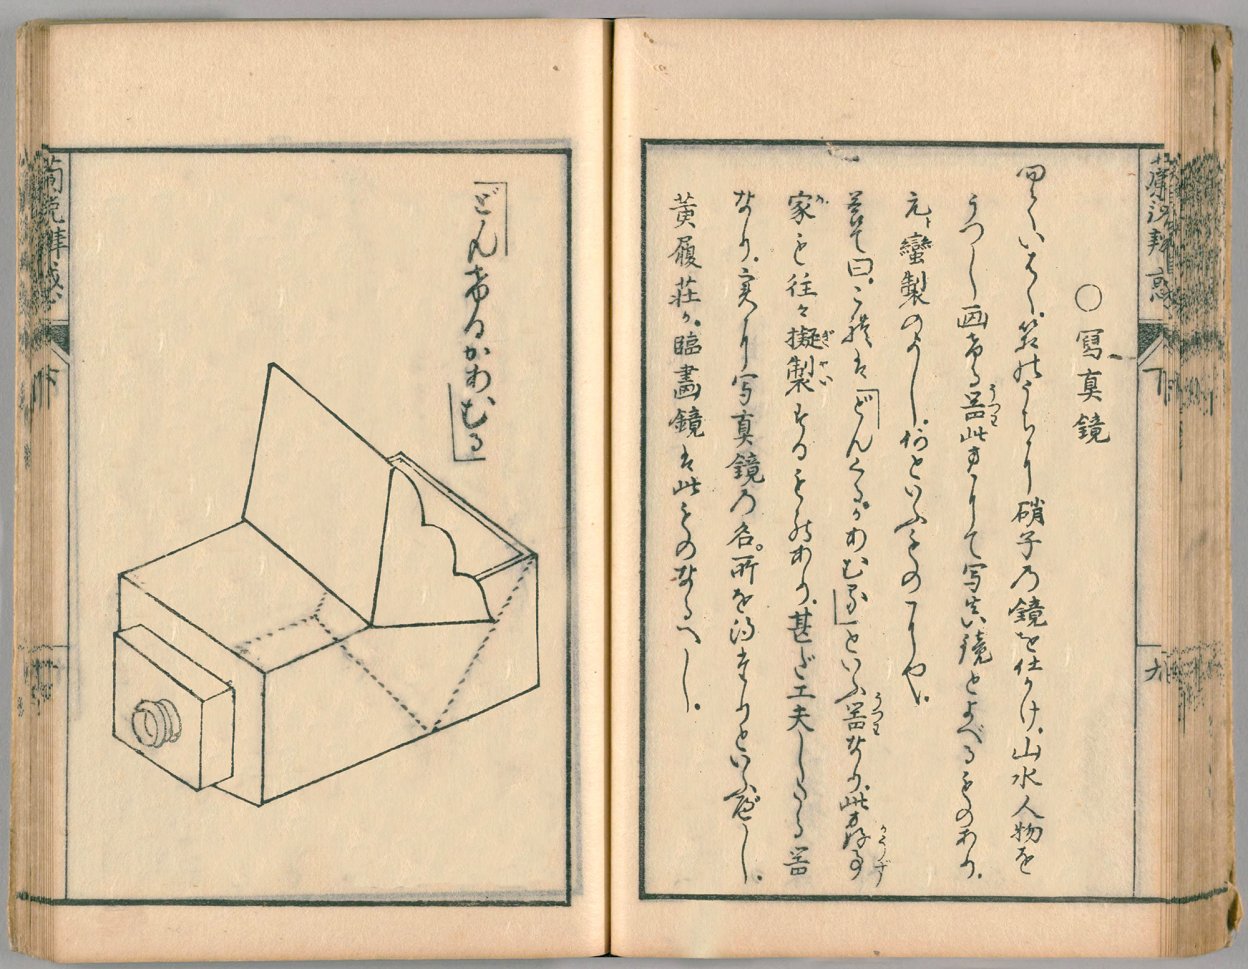 蘭説辨惑
下
九
○寫真鏡
問ていはく、箱のうちに硝子の鏡を仕かけ、山水人物を
うつし画する器此方にて写真鏡とよべるものあり、
元ト蠻製のよし、何といふものにや、
答て曰、これは「どんくるかあむる」といふ器なり、此方好事
家も往々擬製するものあり、甚だ工夫したる器
なり、実に写真鏡の名、所を得たりといふべし、
黄履荘が臨畫鏡は此ものなるべし、
「どんくるかあむる」
蘭説辨惑
下